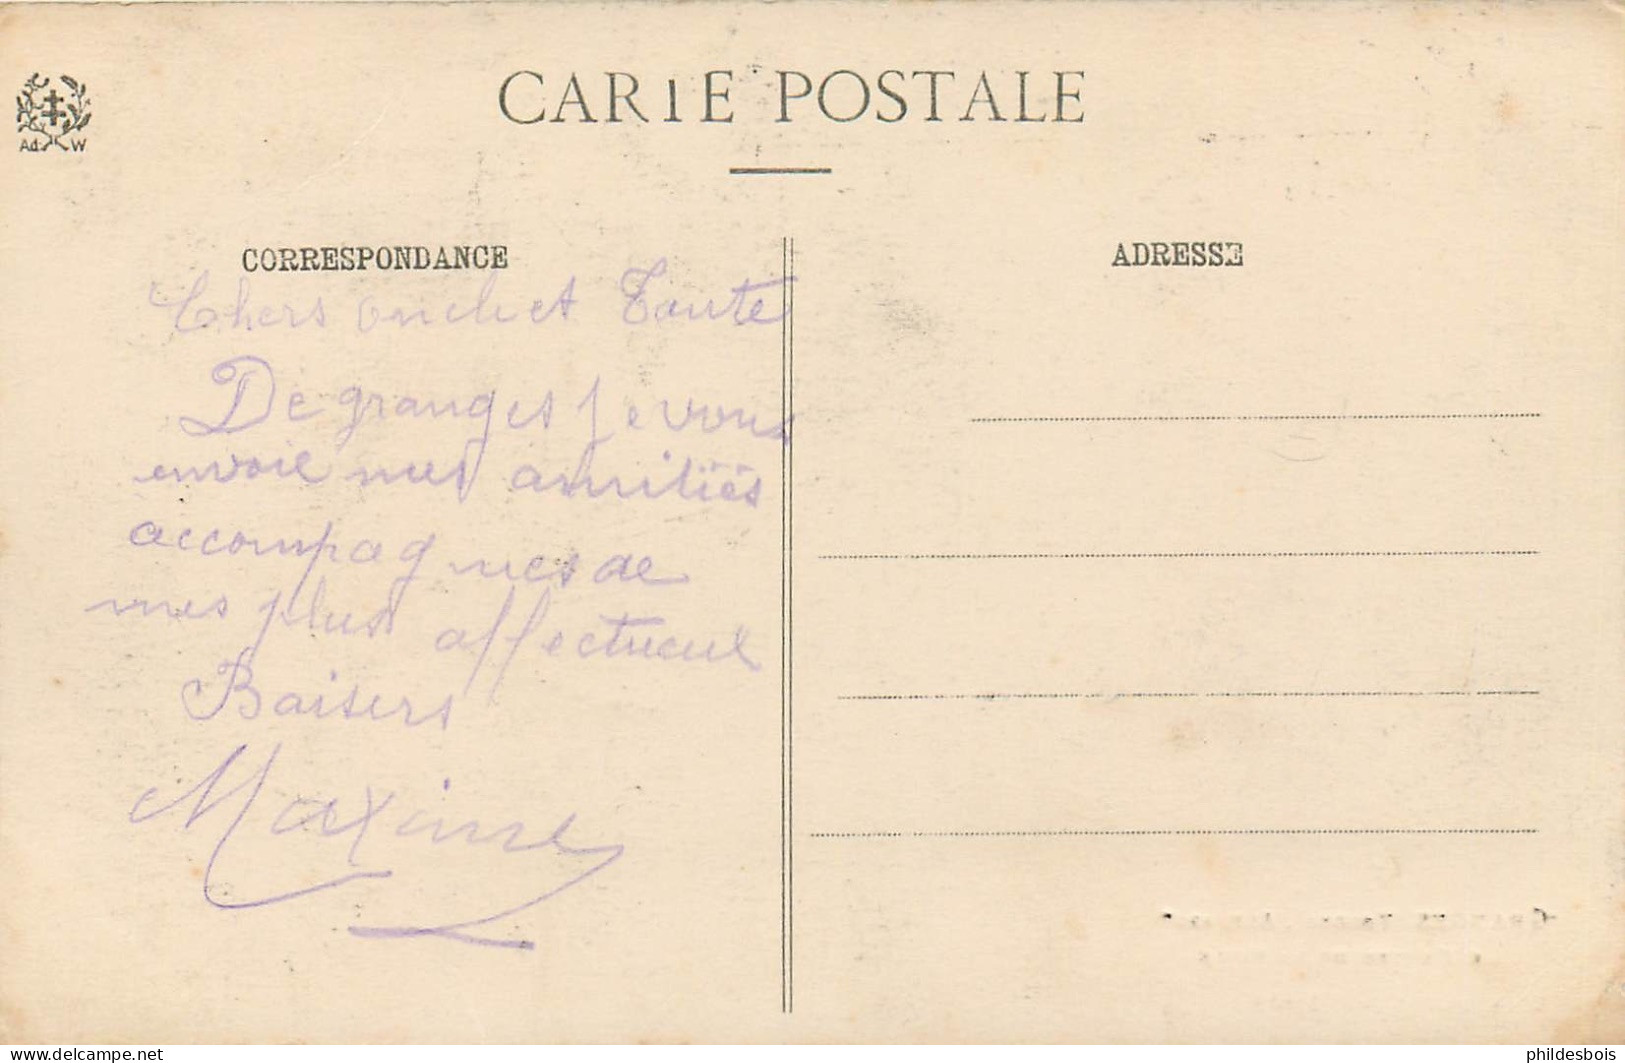 CARTE POSTALE
Ad. W
CORRESPONDANCE
ADRESSE
Chers oncle et Tante
De granges je vous
envoie mes amitiés
accompagnes de
mes plus affectueux
Baisers
Maxime
www.delcampe.net
phildesbois